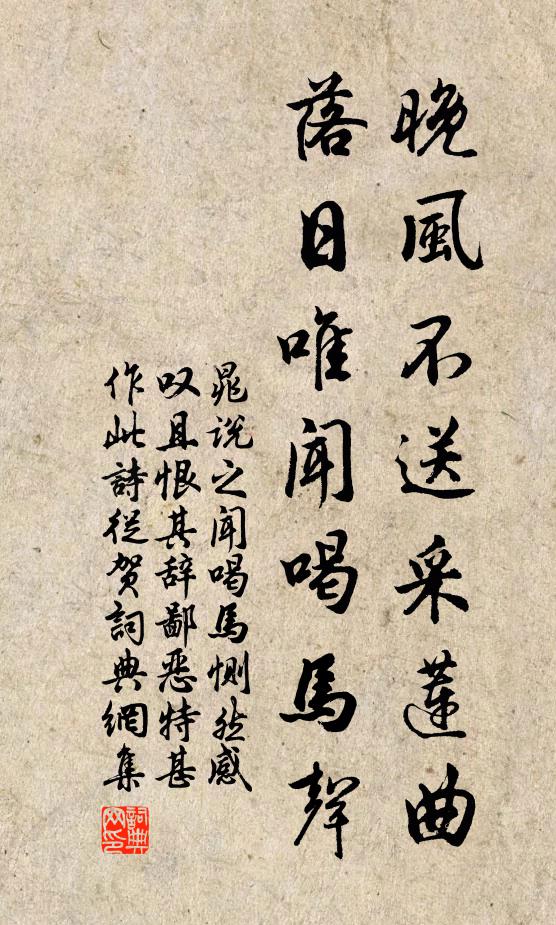 晚風不送采蓮曲
落日唯聞喝馬聲
晁說之聞喝馬惻然感
叹且恨其辞鄙惡特甚
作此詩從贺詞典網集
詞典网印